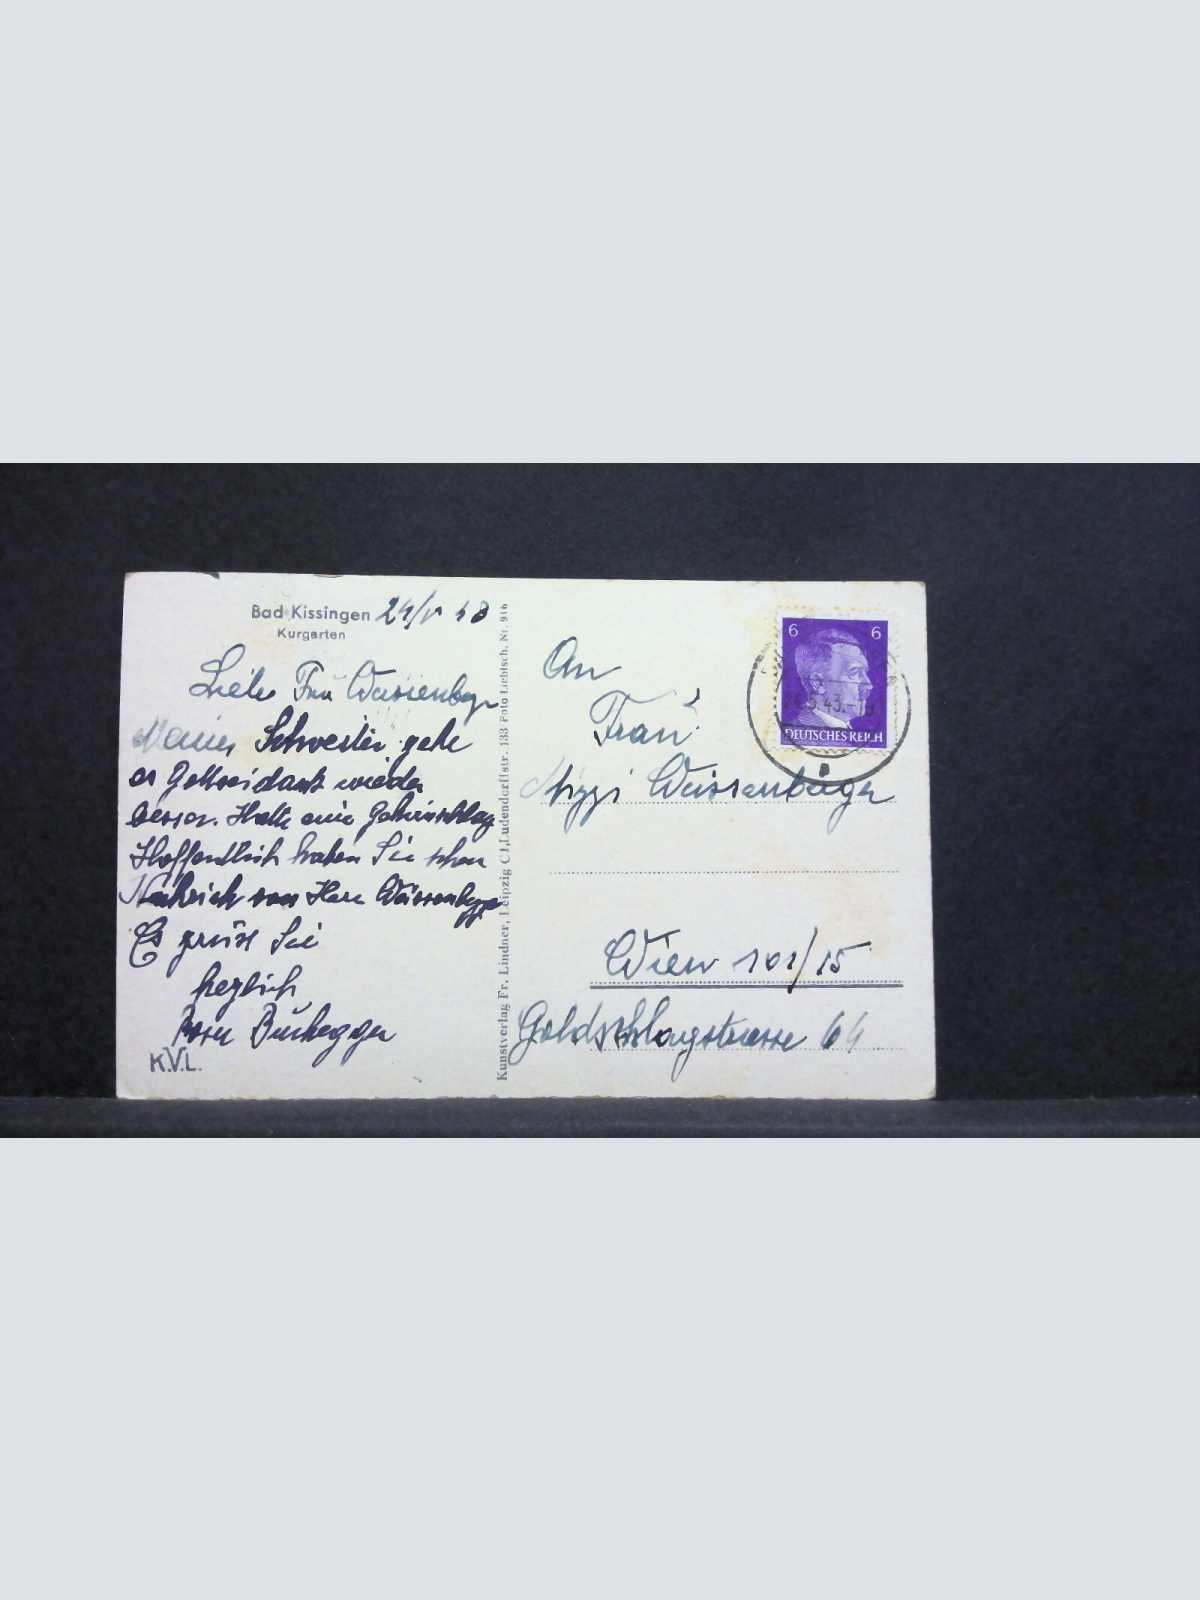 Bad Kissingen 24/V 43
Kurgarten
Liebe Frau Weissenberger
Meiner Schwester geht
es Gottseidank wieder
besser. Hatte eine Gehirnschlag
Hoffentlich haben Sie schon
Nachricht von Herr Weissenberger
Es grüsst Sie
herzlich
Rosa
K.V.L.
Kunstverlag Fr. Lindner, Leipzig C1, Ludendorffstr. 133 Foto Liebisch. Nr. 916
6 6
DEUTSCHES REICH
.5.43.-1
An
Frau
Mizzi Weissenberger
Wien 101/15
Goldschlagstrasse 64